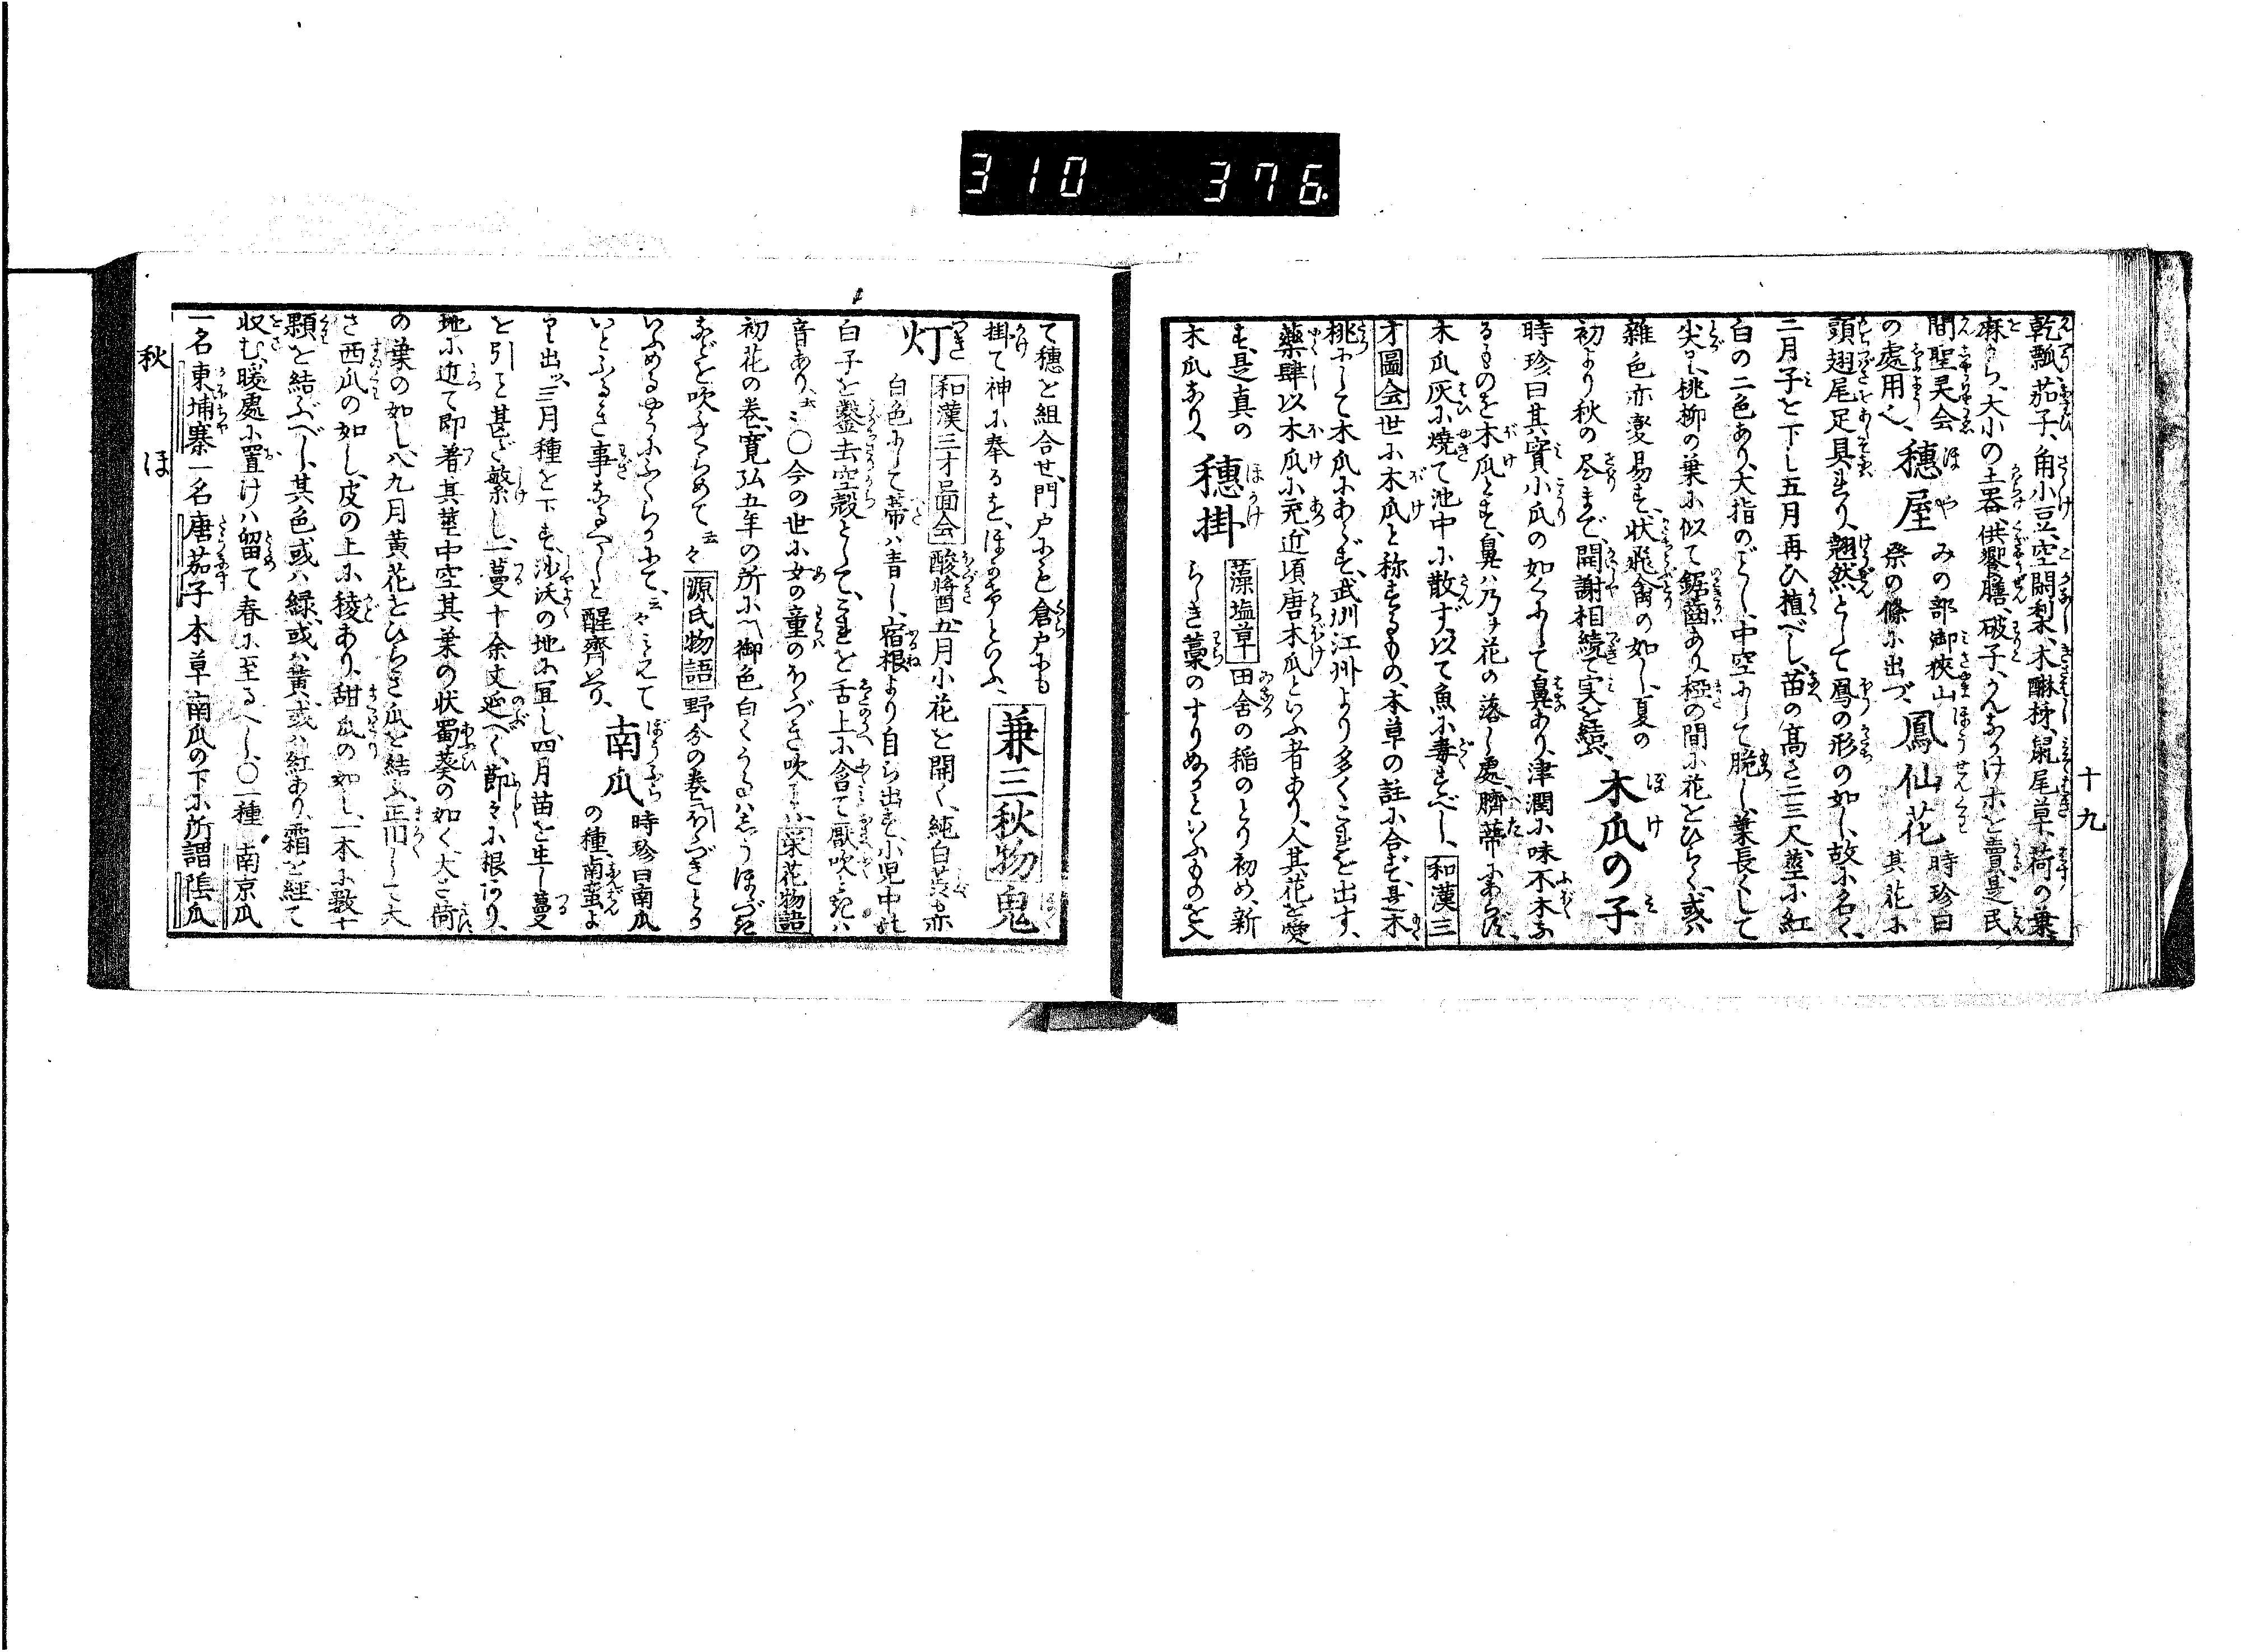 310 376
十九
乾瓢、茄子、角小豆、空閑梨、木醂柹、鼠尾草、荷の葉、
麻から、大小の土器、供饗膳、破子、かんなかけホを賣、是民
間聖灵会
の處用也、
穂屋
みの部御狹山
祭の條に出づ、
鳳仙花
時珍曰
其花に
頭翅尾足具れり、翹然として鳳の形の如し、故に名く、
二月子を下し五月再ひ植べし、苗の高さ二三尺、莖に紅
白の二色あり、大指のごとし、中空にして脆し、葉長くして
尖り、桃柳の葉に似て鋸齒あり、椏の間に花をひらく、或ハ
雜色亦變易す、状飛禽の如し、夏の
初より秋の尽まで、開謝相續て実を續、
木瓜の子
時珍曰其實小瓜の如くにして鼻あり、津潤に味不木な
るものを木瓜とす、鼻ハ乃チ花の落し處、臍蒂にあらず、
木瓜灰に燒て池中に散ず以て魚に毒すべし、和漢三
才圖会世に木瓜と称するもの、本草の註に合ず、是木
桃にして木瓜にあらず、武州江州より多くこれを出す、
藥肆以木瓜に充、近頃唐木瓜といふ者あり、人其花を愛
す、是真の
木瓜なり、
穂掛
藻塩草田舎の稲のとり初め、新
らしき藁のすりぬかといふものを入
て穂を組合せ、門戸にも倉戸にも
掛て神に奉るを、ほかけといふ、
兼三秋物
鬼
灯
和漢三才圖会酸漿酉五月小花を開く、純白其も亦
白色にして蒂ハ青し、宿根より自ら出す、小児中の
白子を鑿去空殻として、これを舌上に含て厭吹ときハ
音あり、云々〇今の世に女の童のほゝづき吹事ハ、栄花物語
初花の巻、寛弘五年の所に御色白くうるハしうほゝづき
などを吹ふくらめて云々源氏物語野分の巻ほゝづきとか
いふめるやうにふくらかにて、云々とみえて
いとふるき事なるべしと醒齊いへり、
南瓜
時珍曰南瓜
の種、南蛮よ
り出ッ、三月種を下す、沙沃の地に宜し、四月苗を生し蔓
を引こと甚だ繁し、一蔓十余丈延べく、節々に根あり、
地に近て即着其莖中空其葉の状蜀葵の如く、大さ荷
の葉の如し、八九月黄花をひらき瓜を結ふ、正円にして大
さ西瓜の如し、皮の上に稜あり、甜瓜の如し、一本に數十
顆を結ぶべし、其色或ハ緑、或ハ黄、或ハ紅あり、霜を経て
収む、暖處に置けハ留て春に至るべし、〇一種、南京瓜
一名東埔寨一名唐茄子本草南瓜の下に所謂陰瓜
秋
ほ